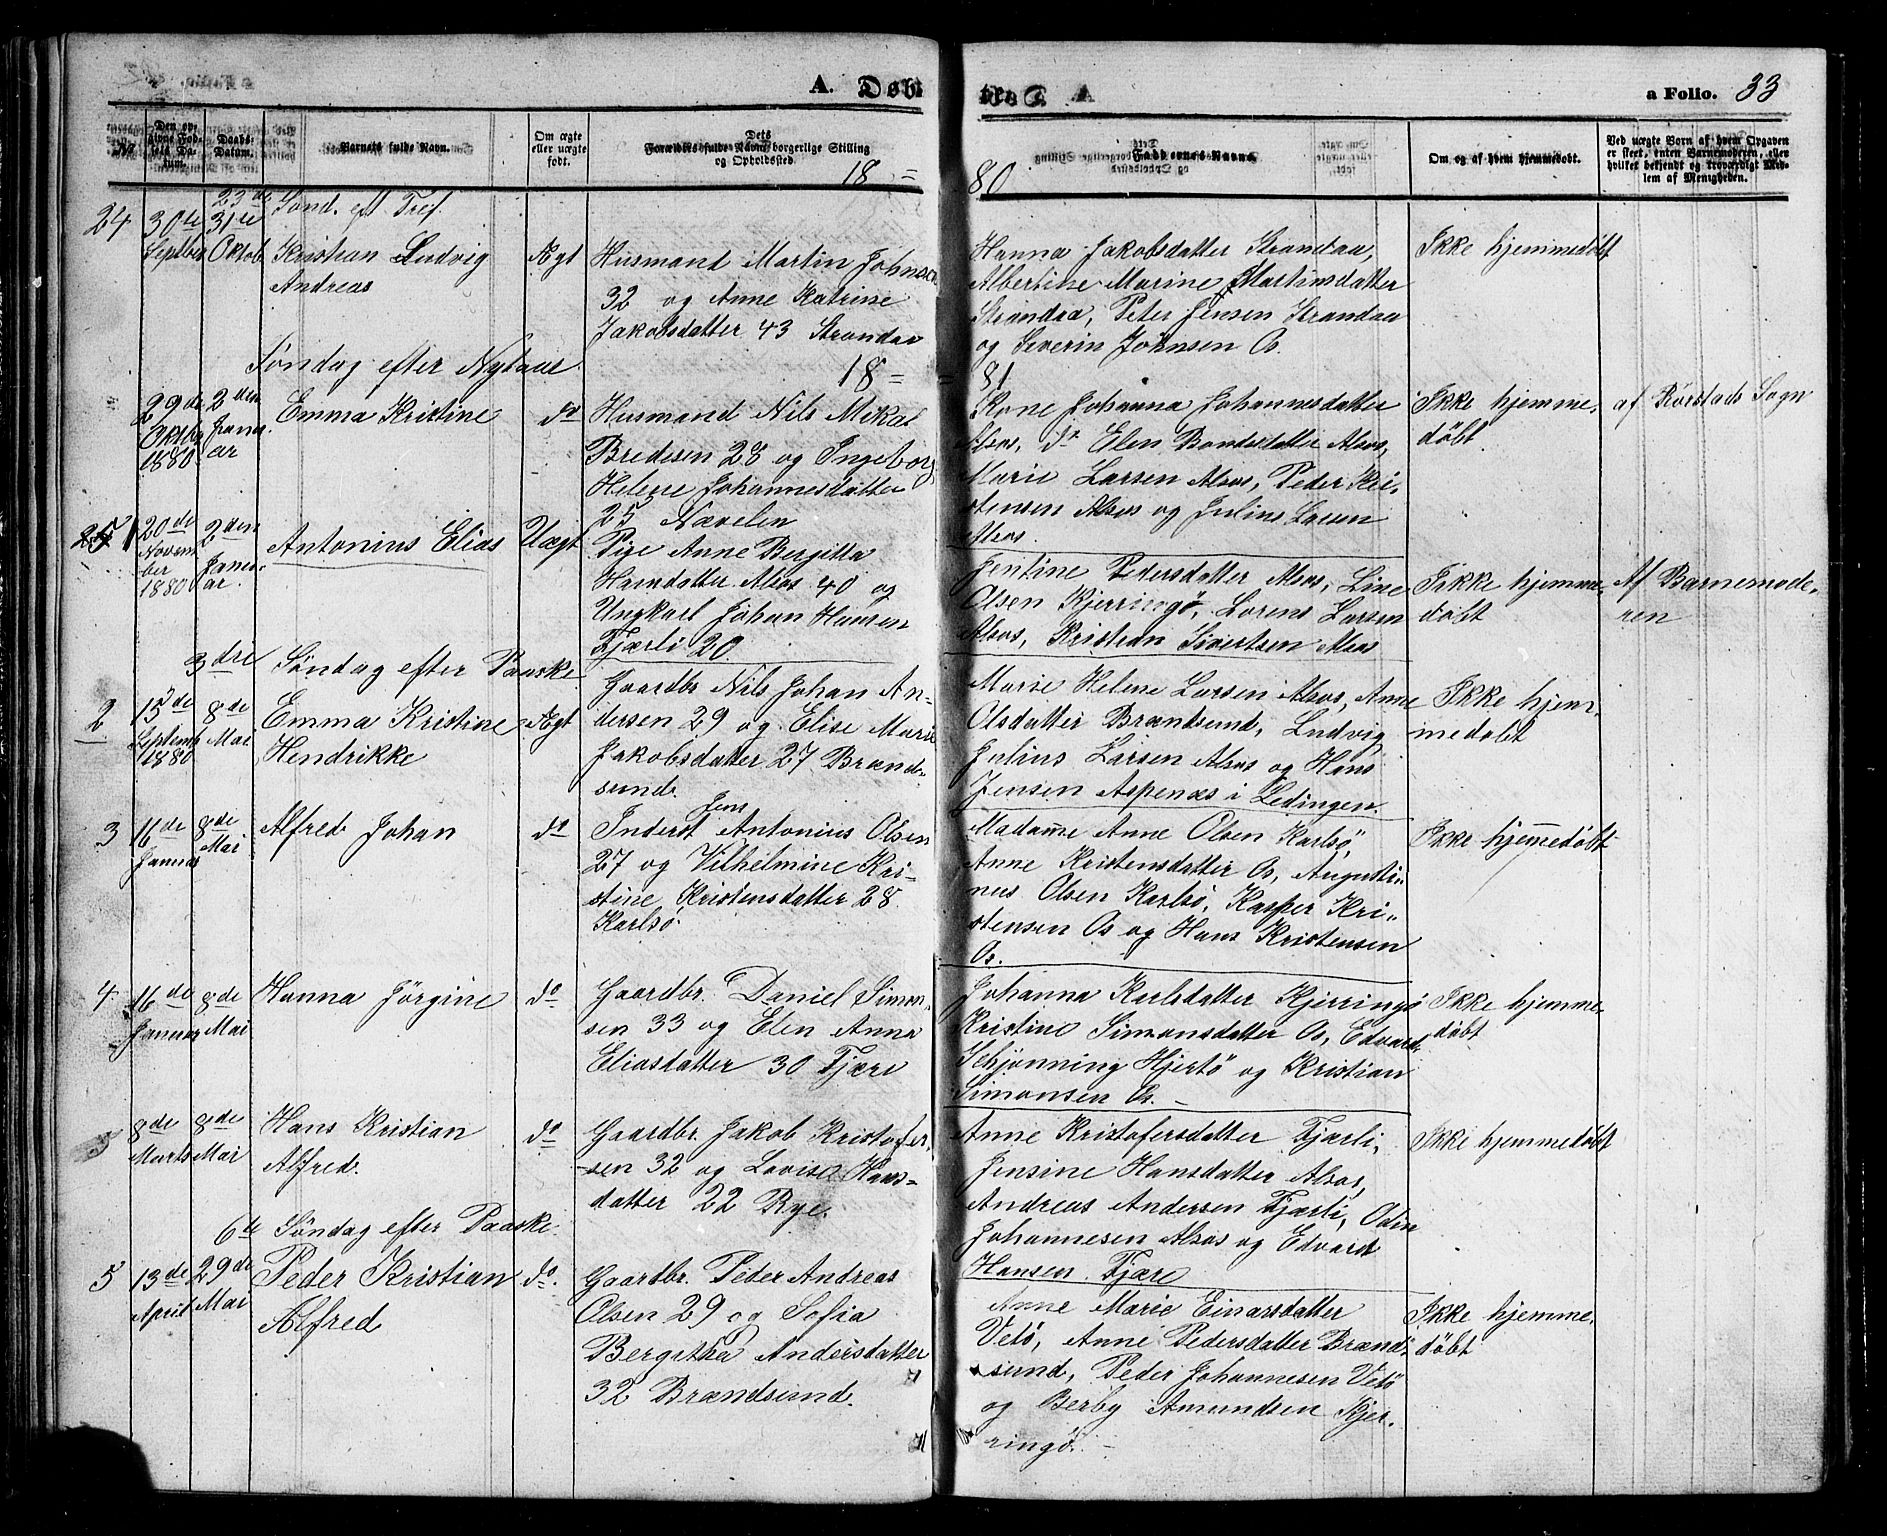 A. Døbte.
a Folio. 33
No.
Den opgivne Fødsels Datum.
Daabs-Datum.
Barnets fulde Navn.
Om ægte eller uægte født.
Forældres fulde Navn, borgerlige Stilling og Opholdssted.
Faddernes Navne
Om og af hvem hjemmedøbt.
Ved uægte Børn af hvem Opgaven er skeet, enten Barnemoderen, eller hvilket bekjendt og troværdigt Medlem af Menigheden.
18 = 80
23de Sønd. eft Tref.
24
30te Septber
31te Oktob.
Kristian Ludvig
Andreas
Ægt
Husmand Martin Johnsen
32 og Anne Katrine
Jakobsdatter 43 Strandaa
Hanna Jakobsdatter Strandaa,
Albertine Marine Martinsdatter
Strandaa, Peter Jensen Strandaa
og Severin Johnsen Os.
Ikke hjemmedøbt
Søndag efter Nytaar
18 = = 81
29de Oktbr 1880
2den Januar
Emma Kristine
do
Husmand Nils Mikal
Bredesen 28 og Ingeborg
Helene Johannesdatter
25 Nævelen
Kone Johanna Johannesdatter
Alsos, do Elen Bondesdatter Alsos,
Marie Larsen Alsos, Peder Kri-
stensen Alsos og Julius Larsen
Alsos.
Ikke hjemme-
døbt
af Rørstads Sogn
1
20de November 1880
2den Januar.
Antonius Elias
Uægt
Pige Anne Bergitta
Hansdatter Alsos 40 og
Ungkarl Johan Hansen
Fjærli 20.
Jentine Pedersdatter Alsos, Line
Olsen Kjerringø, Lorens Larsen
Alsos, Kristian Sivertsen Alsos
Ikke hjemme-
døbt
Af Barnemode-
ren
3dre Søndag efter Paaske
2
15de Septemb 1880
8de Mai
Emma Kristine
Hendrikke
Ægt
Gaardbr Nils Johan An-
dersen 29 og Elise Marie
Jakobsdatter 27 Brænd-
sund.
Marie Helene Larsen Alsos, Anne
Olsdatter Brændsund, Ludvig
Julius Larsen Alsos og Hans
Jensen Aspenæs i Lødingen.
Ikke hjem-
medøbt
3
16de Januar
8de Mai
Alfred Johan
do
Jens
Inderst Antonius Olsen
27 og Vilhelmine Kri-
stine Kristensdatter 28.
Karlsø.
Madamme Anne Olsen Karlsø,
Anne Kristensdatter Os, Augusti-
nus Olsen Karlsø, Kasper Kri-
stensen Os og Hans Kristensen
Os.
Ikke hjemmedøbt
4
16de Januar
8de Mai
Hanna Jørgine
do
Gaardbr. Daniel Simon-
sen 33 og Elen Anna
Eliasdatter 30 Fjære
Johanna Karlsdatter Kjerringø
Kristine Simonsdatter Os, Edvard
Schjønning Hjertø og Kristian
Simonsen Os.
Ikke hjemme-
døbt
5
8de Marts
8de Mai
Hans Kristian
Alfred.
do
Gaardbr. Jakob Kristofer-
sen 32 og Lovise Hans-
datter 22 Rye.
Anne Kristofersdatter Fjærli,
Jensine Hansdatter Alsos,
Andreas Andersen Fjærli, Odin
Johannesen Alsos og Edvard
Hansen Fjære
Ikke hjemmedøbt
6te Søndag efter Paaske
5
13de April
29de Mai
Peder Kristian
Alfred
do.
Gaardbr. Peder Andreas
Olsen 29 og Sofia
Bergitha Andersdatter
32 Brændsund.
Anne Marie Einarsdatter
Vetø, Anne Pedersdatter Brænd-
sund, Peder Johannesen Vetø
og Berby Amundsen Kjer-
ringø.
Ikke hjemme-
døbt